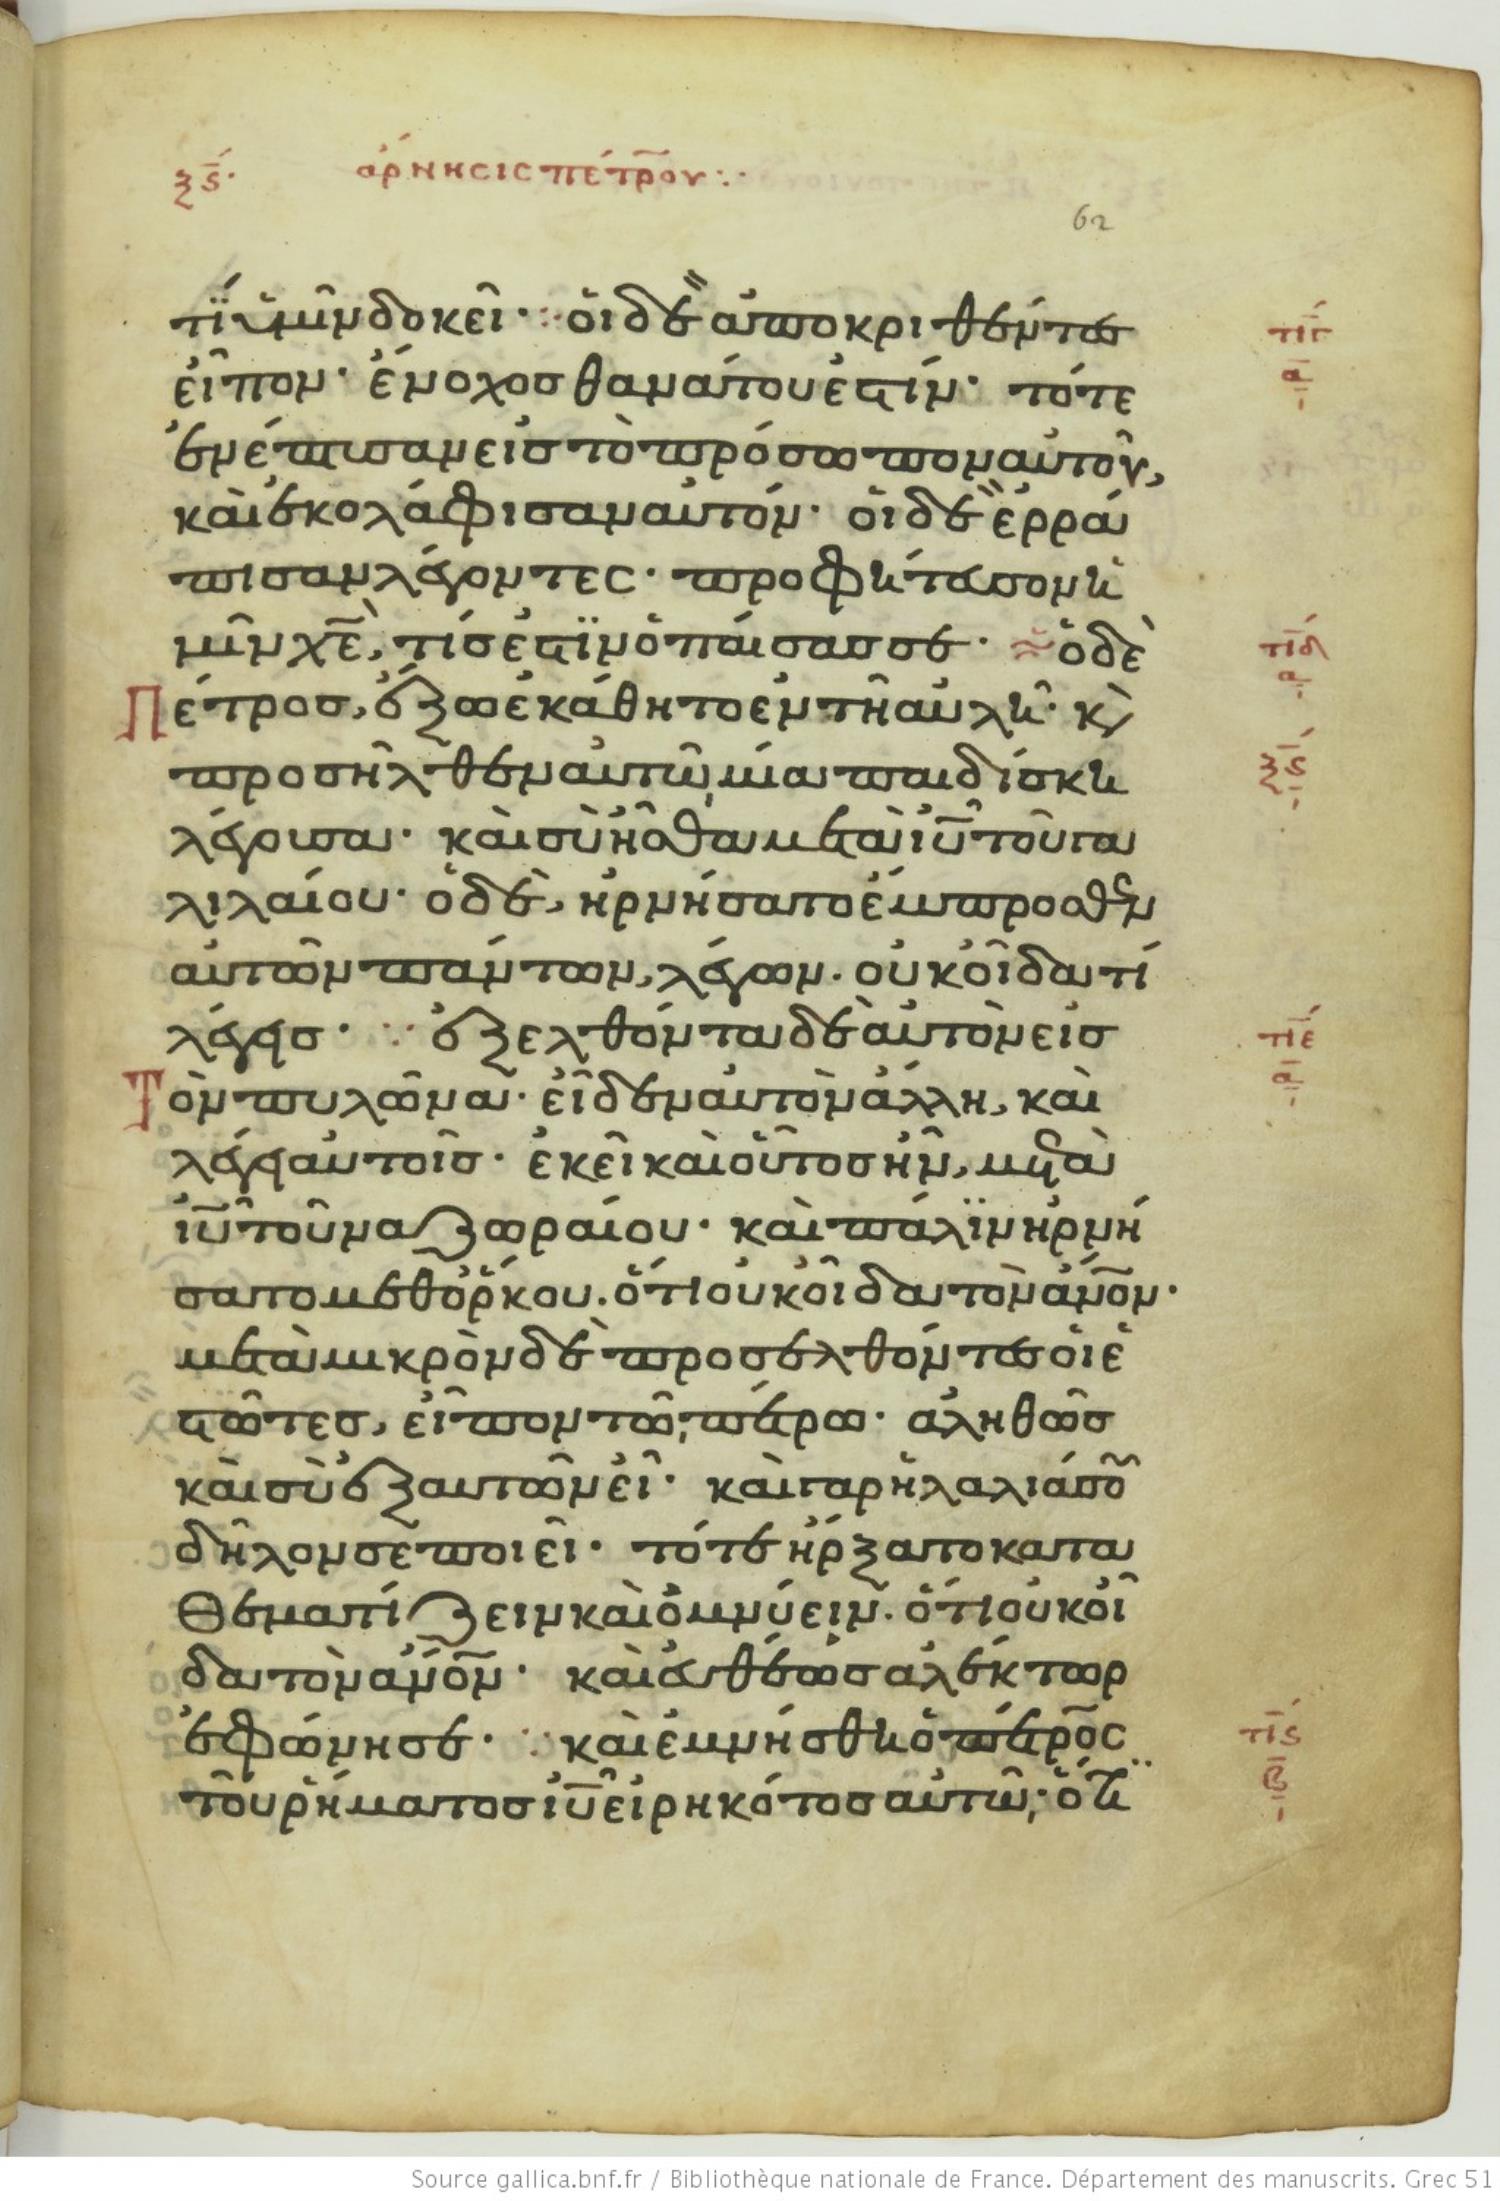 ξϛ· ἄρνησις πέτρου
62
τί ὑμῖν δοκεῖ· οἱ δὲ ἀποκριθέντες
εἶπον· ἔνοχος θανάτου ἐστίν· τότε
ἐνέπτυσαν εἰς τὸ πρόσωπον αὐτοῦ,
καὶ ἐκολάφισαν αὐτόν· οἱ δὲ ἐρρά
πισαν λέγοντες· προφήτευσον ἡ
μῖν χε̅, τίς ἐστϊν ὁ παίσας σε· ὁ δὲ
Πέτρος, ἔξω ἐκάθητο ἐν τῇ αὐλῇ· κ
προσῆλθεν αὐτῶ μία παιδίσκη
λέγουσα· καὶ σὺ ἦσθα μετὰ ιυ̅ τοῦ γα
λιλαίου· ὁ δὲ, ἠρνήσατο ἔμπροσθεν
αὐτῶν πάντων, λέγων· οὐκ οἶδα τί
λέγεις· ἐξελθόντα δὲ αὐτὸν εἰς
Τὸν πυλῶνα· εἶδεν αὐτὸν ἄλλη, καὶ
λέγει αὐτοῖς· ἐκεῖ καὶ οὗτος ἦν, μετὰ
ιυ̅ τοῦ ναζωραίου· καὶ πάλϊν ἠρνή
σατο μεθ ὅρκου· ὅτι οὐκ οἶδα τὸν ἄν̅ο̅ν·
μετὰ μικρὸν δὲ προσελθόντες οἱ ἑ
στῶτες, εἶπον τῶ πέτρω· ἀληθῶς
καὶ σὺ ἐξ αὐτῶν εἶ· καὶ γὰρ ἡ λαλιά σου
δῆλον σε ποιεῖ· τότε ἤρξατο κατα
θεματίζειν καὶ ὀμνύειν· ὅτι οὐκ οἶ
δα τὸν ἄν̅ο̅ν· καὶ εὐθέως ἀλέκτωρ
ἐφώνησε· καὶ ἐμνήσθη ὁ πέτρος
τοῦ ῥήματος ιυ̅ εἰρηκότος αὐτῶ· ὅτι
τιγ
α
τιδ
α
ξϛ
τιε
α
τιϛ
β
Source gallica.bnf.fr / Bibliothèque nationale de France. Département des manuscrits. Grec 51